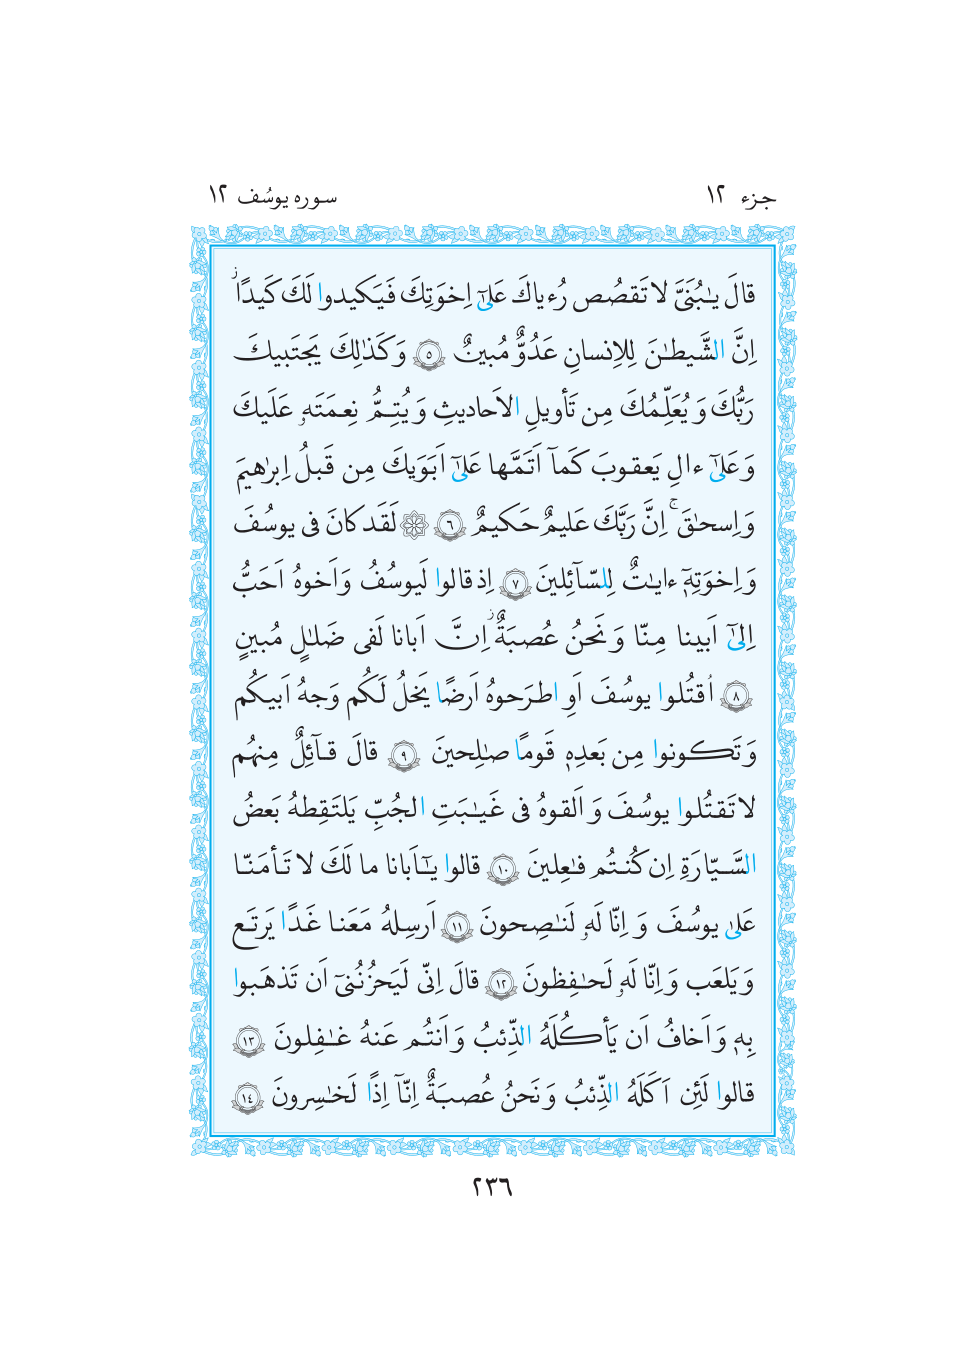 جزء ١٢
سوره يوسُف ١٢
قالَ يٰبُنَىَّ لا تَقصُص رُءياكَ عَلىٰٓ اِخوَتِكَ فَيَكيدوا لَكَ كَيدًاۖ
اِنَّ الشَّيطٰنَ لِلاِنسانِ عَدُوٌّ مُبينٌ ٥ وَ كَذٰلِكَ يَجتَبيكَ
رَبُّكَ وَ يُعَلِّمُكَ مِن تَأويلِ الاَحاديثِ وَ يُتِمُّ نِعمَتَهٗ عَلَيكَ
وَ عَلىٰٓ ءالِ يَعقوبَ كَمآ اَتَمَّها عَلىٰٓ اَبَوَيكَ مِن قَبلُ اِبرٰهيمَ
وَ اِسحٰقَۚ اِنَّ رَبَّكَ عَليمٌ حَكيمٌ ٦ ۞ لَقَد كانَ فى يوسُفَ
وَ اِخوَتِهٖٓ ءايٰتٌ لِلسّآئِلينَ ٧ اِذ قالوا لَيوسُفُ وَ اَخوهُ اَحَبُّ
اِلىٰٓ اَبينا مِنّا وَ نَحنُ عُصبَةٌ اِنَّ اَبانا لَفى ضَلٰلٍ مُبينٍ
٨ اُقتُلوا يوسُفَ اَوِ اطرَحوهُ اَرضًا يَخلُ لَكُم وَجهُ اَبيكُم
وَ تَكونوا مِن بَعدِهٖ قَومًا صٰلِحينَ ٩ قالَ قآئِلٌ مِنهُم
لا تَقتُلوا يوسُفَ وَ اَلقوهُ فى غَيٰبَتِ الجُبِّ يَلتَقِطهُ بَعضُ
السَّيّارَةِ اِن كُنتُم فٰعِلينَ ١٠ قالوا يٰٓاَبانا ما لَكَ لا تَأمَنّا
عَلىٰ يوسُفَ وَ اِنّا لَهٗ لَنٰصِحونَ ١١ اَرسِلهُ مَعَنا غَدًا يَرتَع
وَ يَلعَب وَ اِنّا لَهٗ لَحٰفِظونَ ١٢ قالَ اِنّى لَيَحزُنُنىٓ اَن تَذهَبوا
بِهٖ وَ اَخافُ اَن يَأكُلَهُ الذِّئبُ وَ اَنتُم عَنهُ غٰفِلونَ ١٣
قالوا لَئِن اَكَلَهُ الذِّئبُ وَ نَحنُ عُصبَةٌ اِنّآ اِذًا لَخٰسِرونَ ١٤
٢٣٦